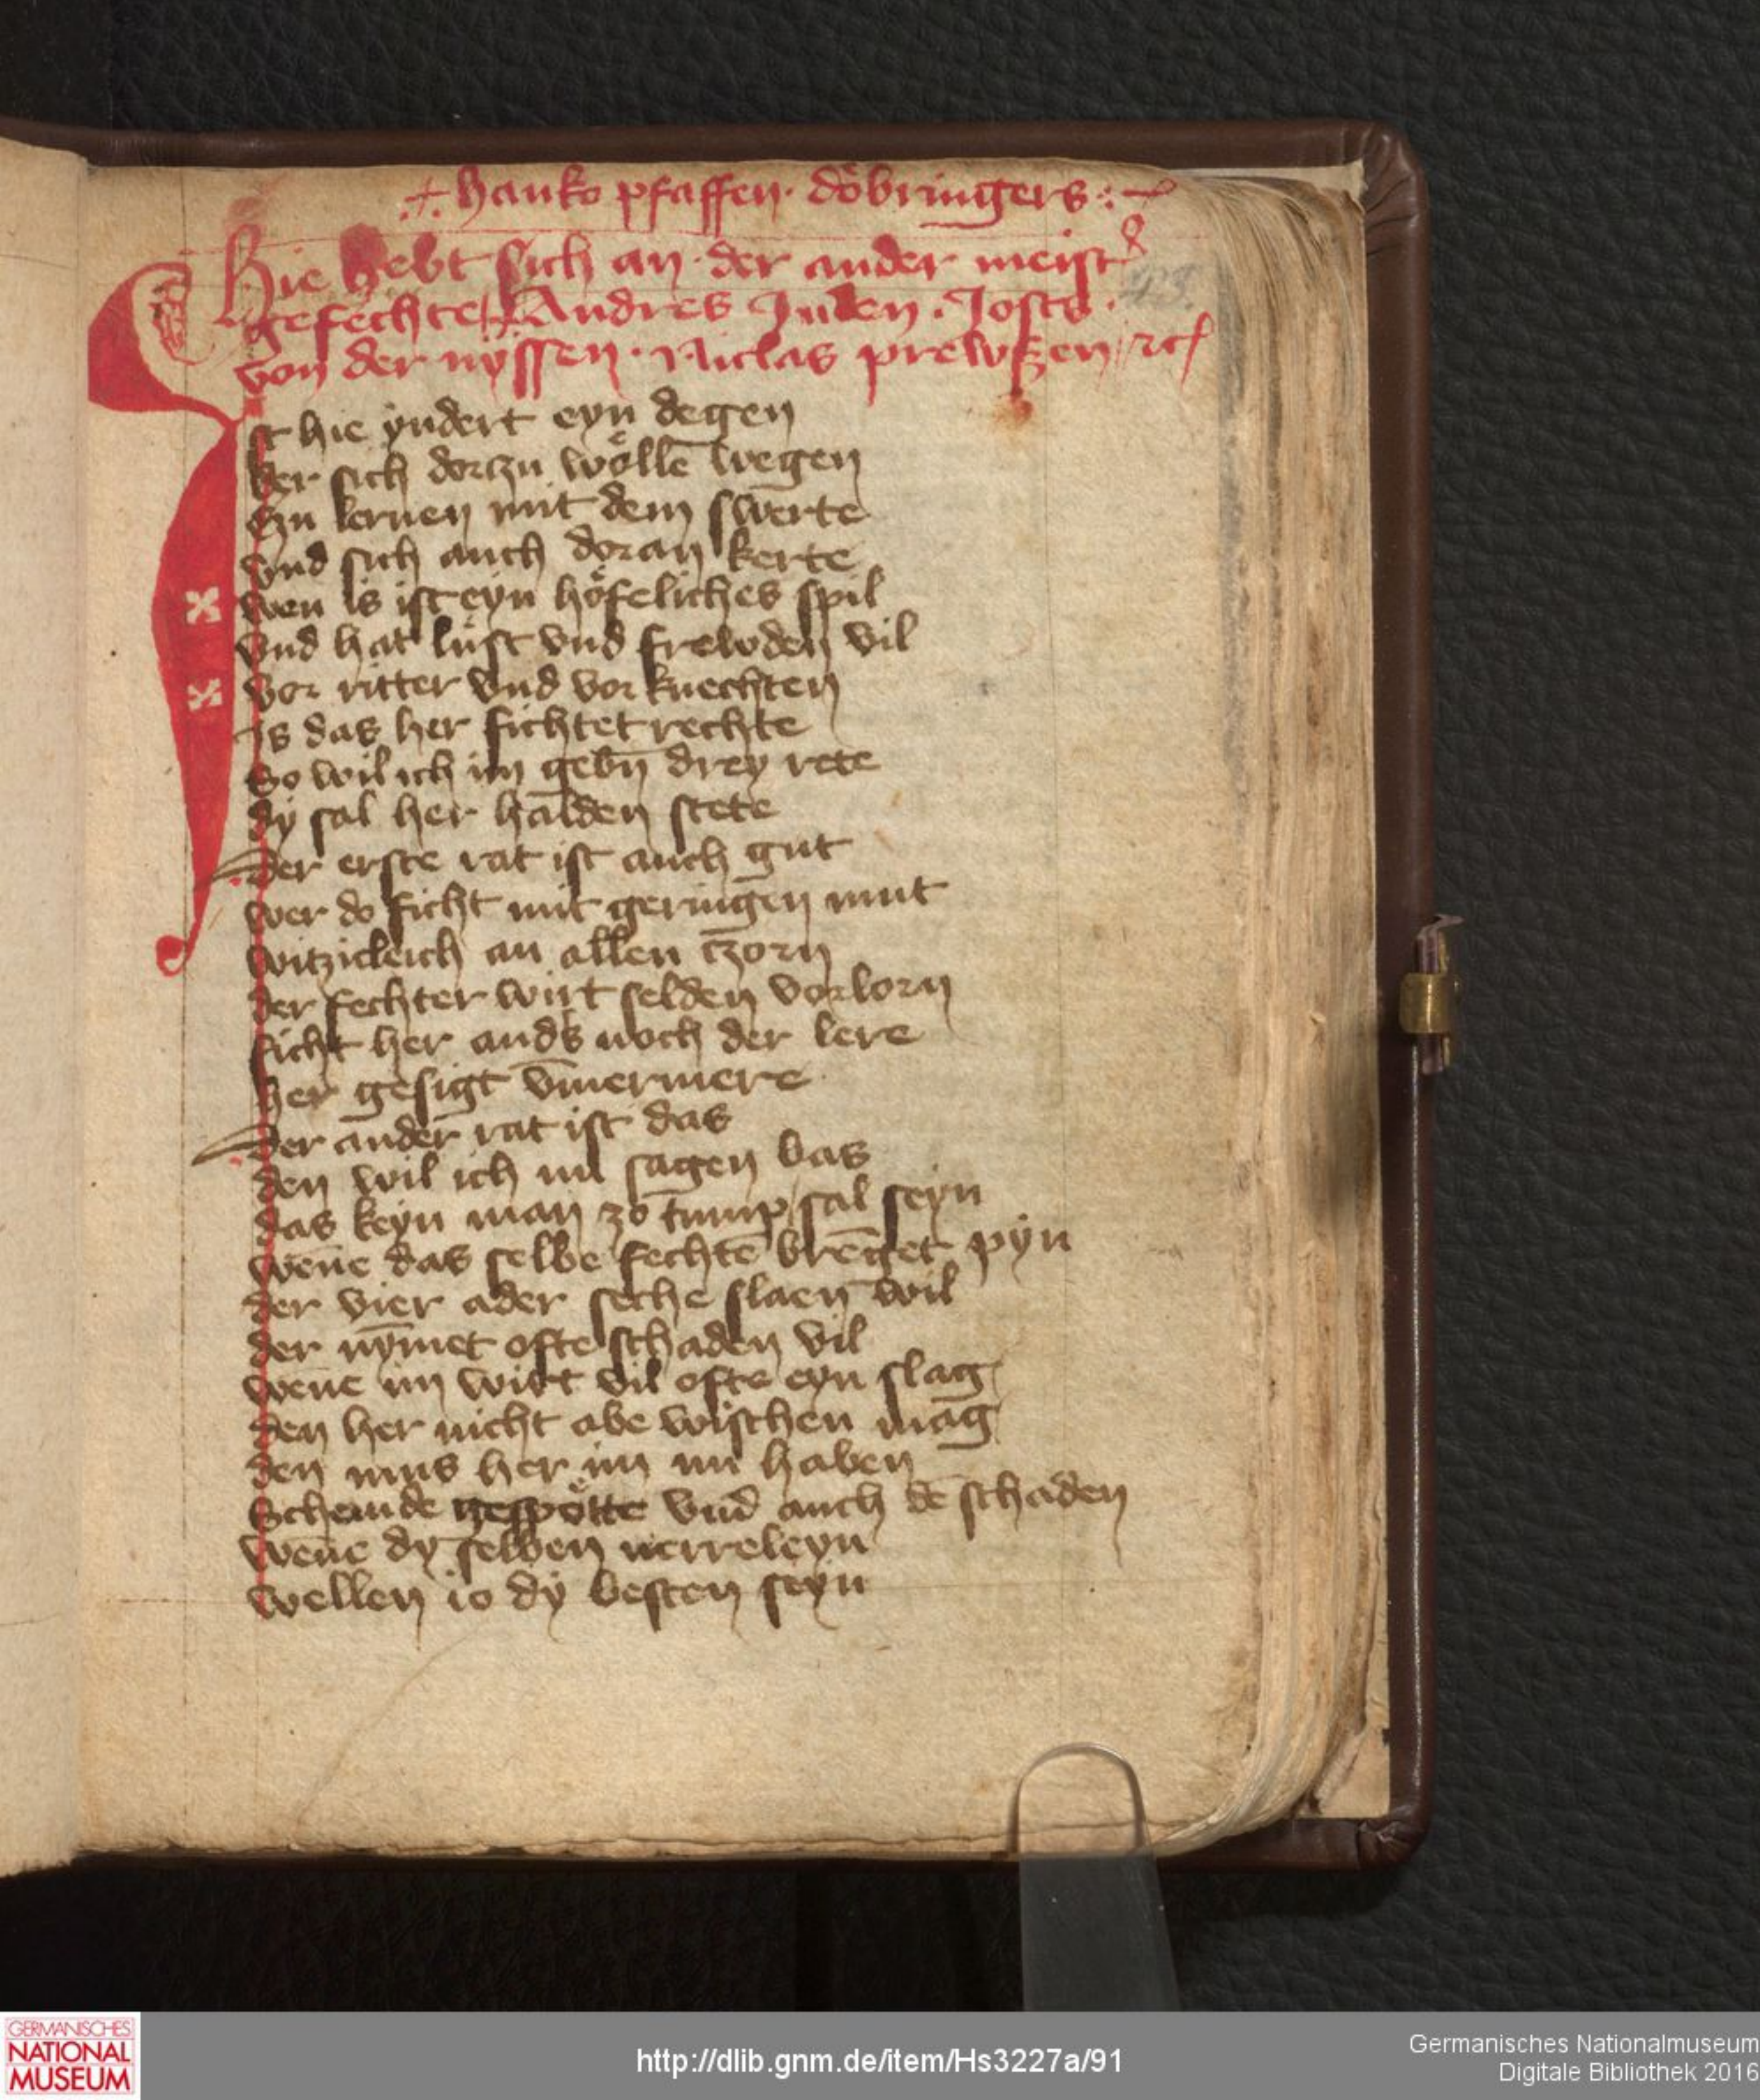 .+. hanko pfaffen · döbringers :~
Hie hebt sich an · der ander meist᷑
gefechte / Andres Juden · Josts ·
von der nyssen · Niclas prewßen / ꝛcſ
43.
Ist hie yndert eyn degen
der sich dorczu wölle̅ wegen
Czu lernen mit dem swerte
vnd sich auch doran kerte
wen is ist eyn höfeliches spil
vnd hat lust vnd frewden vil
vor ritter vnd vor knechten
Is das her fichtet rechte
So wil ich im gebn̅ drey rete
dy sal her halden stete
Der erste rat ist auch gut
wer do ficht mit geringen mut
witzicleich an allen czorn
der fechter wirt selden vorlorn
ficht her and᷑s noch der lere
her gesigt v̅mermere
Der ander rat ist das
den wil ich nu sagen bas
das keyn man zo tump sal seyn
wen̅e das selbe fechte̅ bre̅get pyn
der vier ader seche slaen wil
der ny̅met ofte schaden vil
wen̅e im wirt vil ofte eyn slag
den her nicht abe wischen mag
den mus her im nu haben
Schemde gespötte vnd auch de̅ schaden
wen̅e dy selben nerreleyn
wellen io dy besten seyn
GERMANISCHES
NATIONAL
MUSEUM
http://dlib.gnm.de/item/Hs3227a/91
Germanisches Nationalmuseum
Digitale Bibliothek 2016